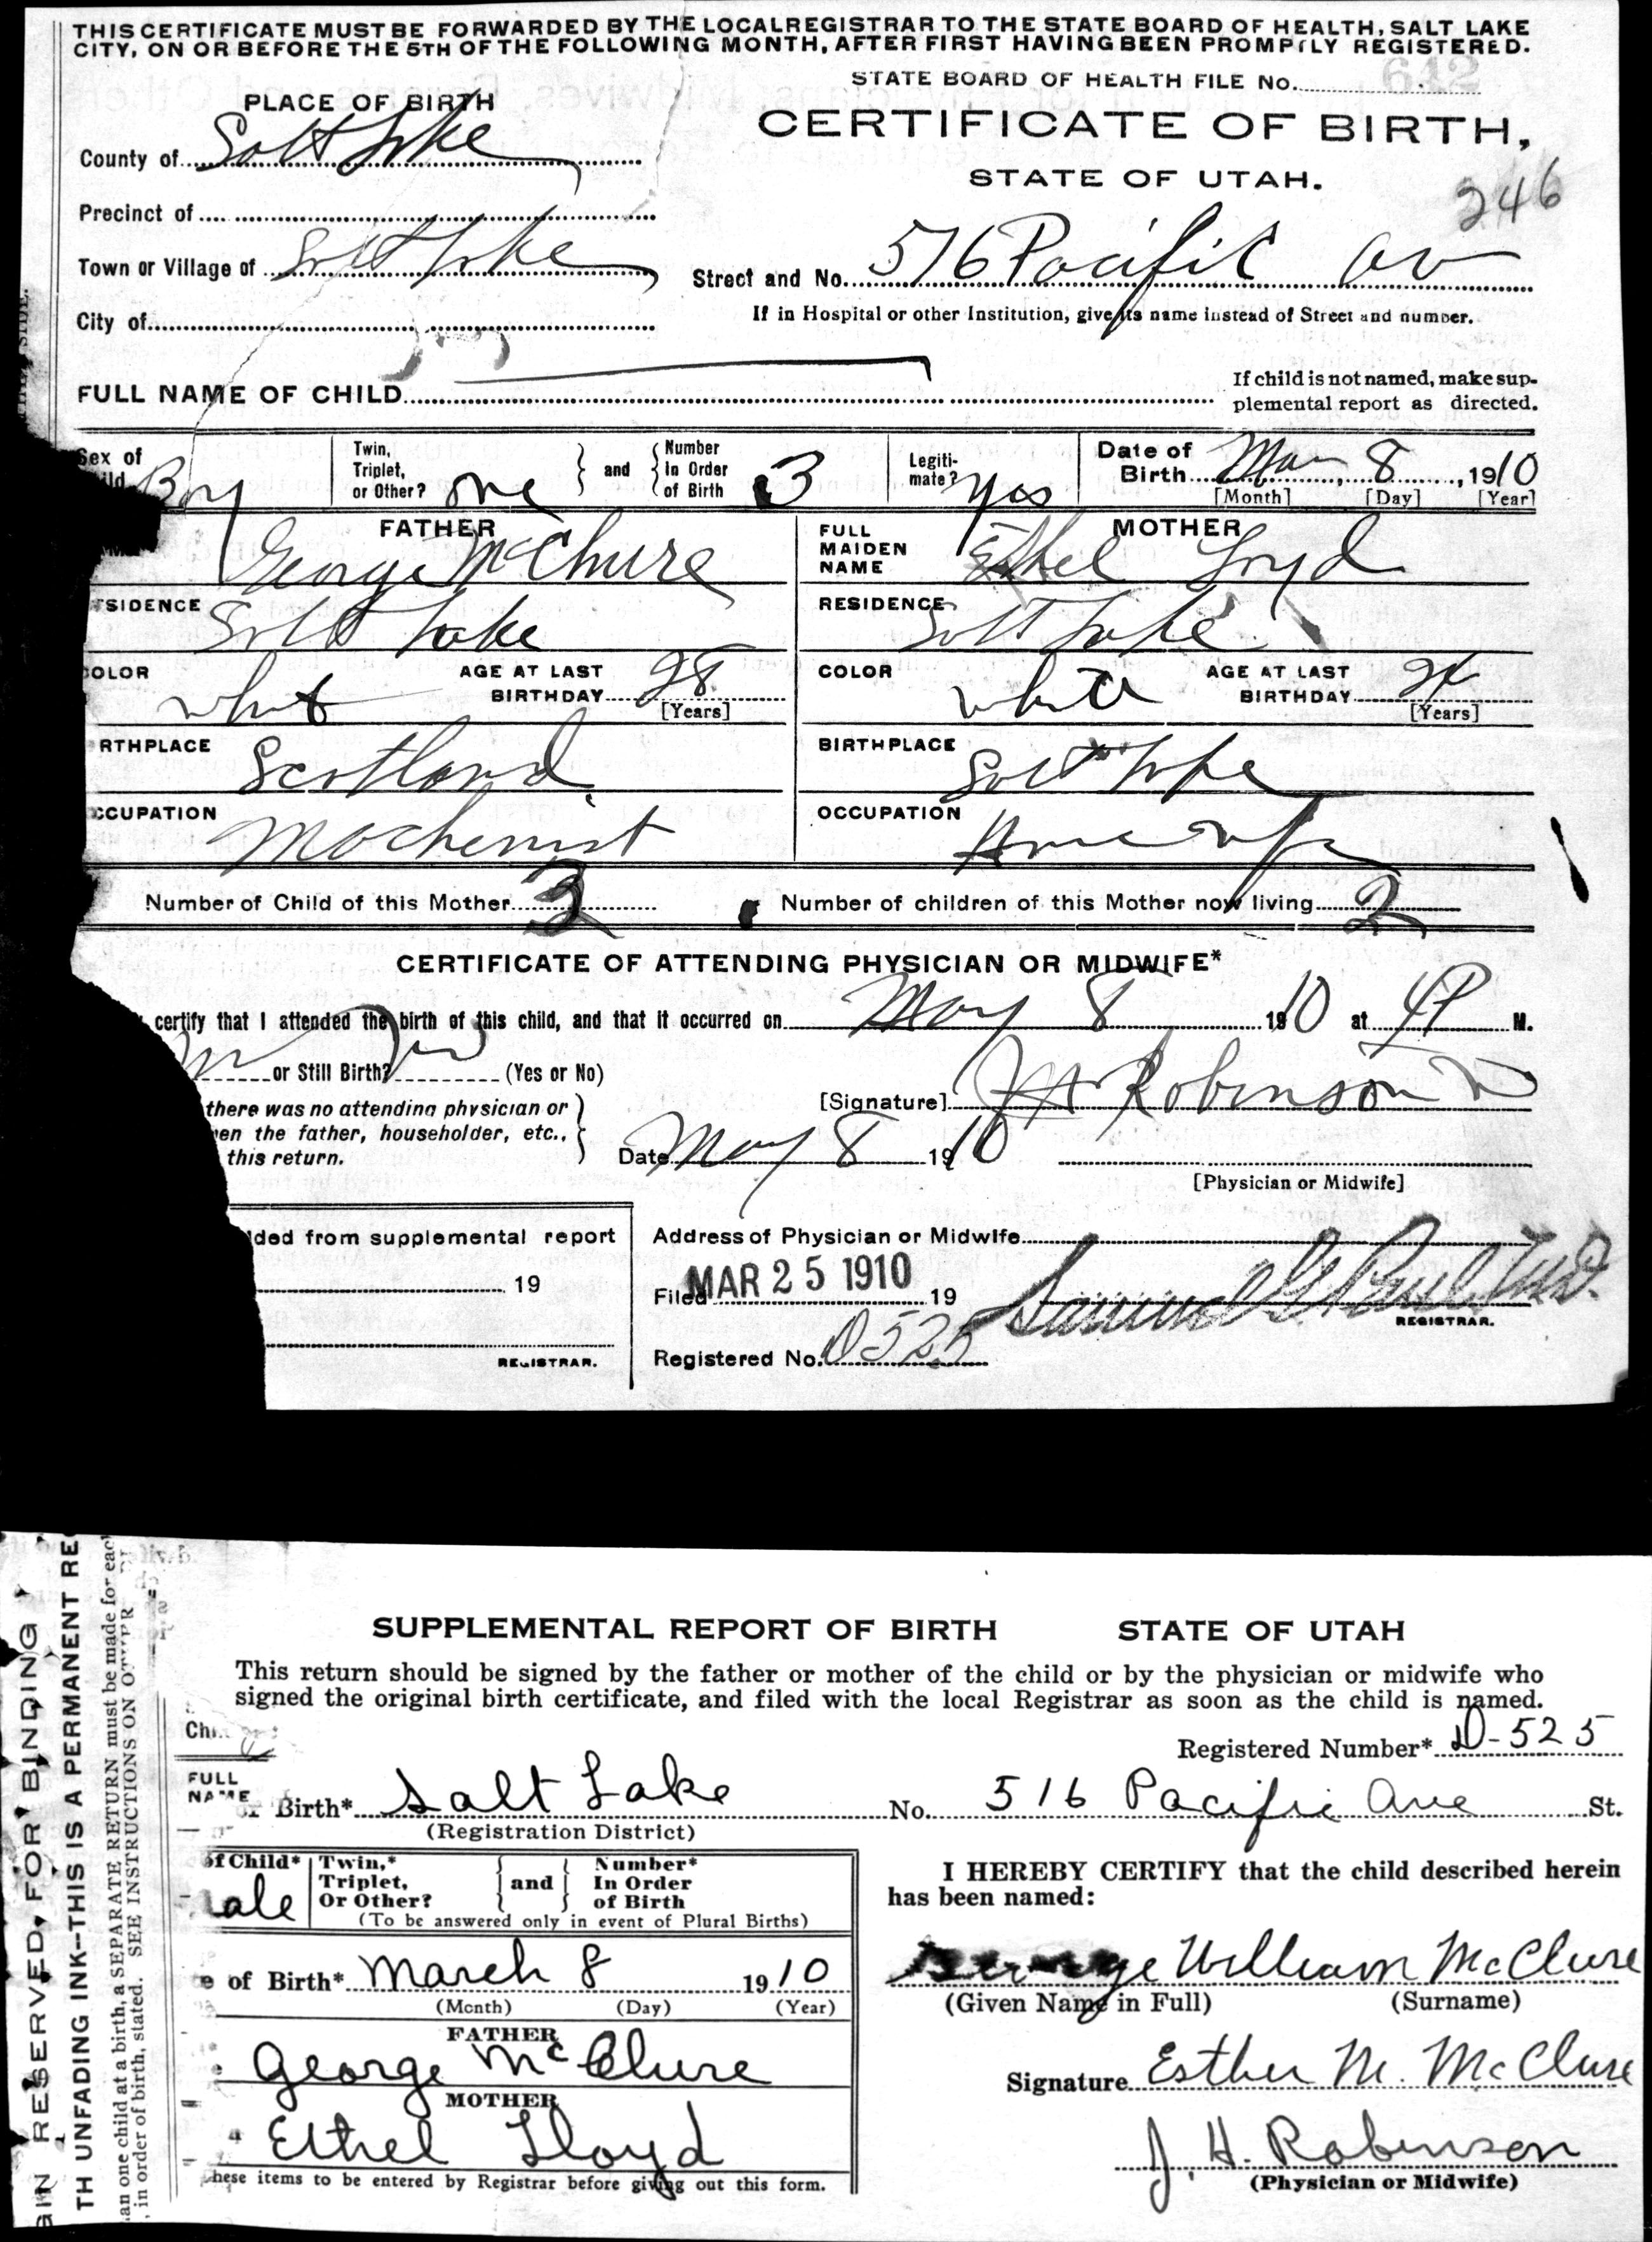 THIS CERTIFICATE MUST BE FORWARDED BY THE LOCAL REGISTRAR TO THE STATE BOARD OF HEALTH, SALT LAKE
CITY, ON OR BEFORE THE 5TH OF THE FOLLOWING MONTH, AFTER FIRST HAVING BEEN PROMPTLY REGISTERED.
STATE BOARD OF HEALTH FILE No. 642
PLACE OF BIRTH
CERTIFICATE OF BIRTH,
County of Salt Lake
STATE OF UTAH.
246
Precinct of
Town or Village of Salt Lake Street and No. 516 Pacific av
City of
If in Hospital or other Institution, give its name instead of Street and number.
FULL NAME OF CHILD
If child is not named, make sup-
plemental report as directed.
Sex of
ild Boy
Twin,
Triplet,
or Other? one
and
Number
In Order
of Birth 3
Legiti-
mate? yes
Date of
Birth Mar 8, 1910
[Month] [Day] [Year]
FATHER
George McClure
FULL
MAIDEN
NAME
MOTHER
Ethel Loyd
SIDENCE Salt Lake
RESIDENCE Salt Lake
OLOR whit
AGE AT LAST
BIRTHDAY 28
[Years]
COLOR white
AGE AT LAST
BIRTHDAY
[Years]
RTHPLACE Scotland
BIRTHPLACE Salt Lake
CCUPATION Machenist
OCCUPATION
Number of Child of this Mother 3
Number of children of this Mother now living 2
CERTIFICATE OF ATTENDING PHYSICIAN OR MIDWIFE*
certify that I attended the birth of this child, and that it occurred on May 8 1910 at 4P M.
or Still Birth? (Yes or No)
there was no attending physician or
en the father, householder, etc.,
this return.
[Signature] J H Robinson
Date May 8 1910
[Physician or Midwife]
ded from supplemental report
19
REGISTRAR.
Address of Physician or Midwife
Filed MAR 25 1910 19
Samuel G. Paul M.D.
REGISTRAR.
Registered No. D525
GIN RESERVED FOR BINDING
TH UNFADING INK--THIS IS A PERMANENT RE
an one child at a birth, a SEPARATE RETURN must be made for each
, in order of birth, stated. SEE INSTRUCTIONS ON OTHER
SUPPLEMENTAL REPORT OF BIRTH STATE OF UTAH
This return should be signed by the father or mother of the child or by the physician or midwife who
signed the original birth certificate, and filed with the local Registrar as soon as the child is named.
Registered Number* D-525
FULL
NAME
Birth* Salt Lake No. 516 Pacific Ave St.
(Registration District)
of Child*
ale
Twin,*
Triplet,
Or Other?
and
Number*
In Order
of Birth
(To be answered only in event of Plural Births)
e of Birth* March 8 1910
(Month) (Day) (Year)
FATHER
George McClure
MOTHER
Ethel Lloyd
hese items to be entered by Registrar before giving out this form.
I HEREBY CERTIFY that the child described herein
has been named:
George William McClure
(Given Name in Full) (Surname)
Signature Esther M. McClure
J. H. Robinson
(Physician or Midwife)